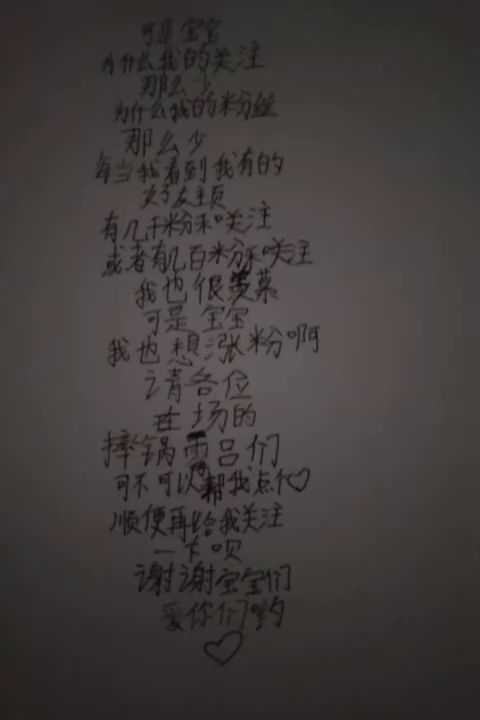 可是宝宝
为什么我的关注
那么少
为什么我的粉丝
那么少
每当我看到我有的
好友主页
有几千粉和关注
或者有几百粉和关注
我也很羡慕
可是宝宝
我也想涨粉啊
请各位
在场的
摔锅 吕们
可不可以帮我点个♡
顺便再给我关注
一下呗
谢谢宝宝们
爱你们哟
♡